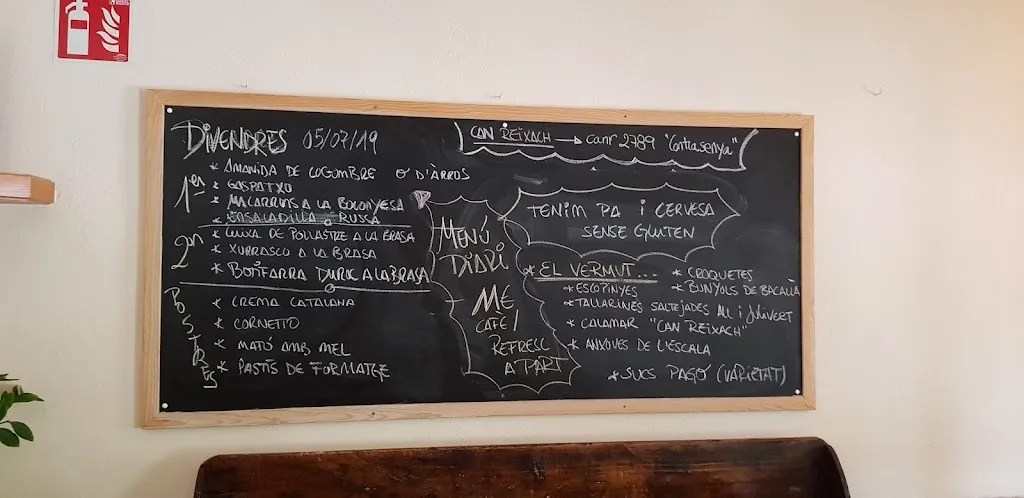 DIVENDRES 05/07/19
1er
* AMANIDA DE COGOMBRE O D'ÀRROS
* GASPATXO
* MACARRONS A LA BOLONYESA
* ENSALADILLA RUSSA
2on
* CUIXA DE POLLASTRE A LA BRASA
* XURRASCO A LA BRASA
* BOTIFARRA DUROC A LA BRASA
POSTRES
* CREMA CATALANA
* CORNETTO
* MATÓ AMB MEL
* PASTÍS DE FORMATGE
MENÚ
DIARI
CAFÈ /
REFRESC
A PART
CAN REIXACH → canr 2789 "Contrasenya"
TENIM PA i CERVESA
SENSE GLUTEN
* EL VERMUT...
* ESCOPINYES
* TALLARINES SALTEJADES ALL i JULIVERT
* CALAMAR "CAN REIXACH"
* ANXOVES DE L'ESCALA
* CROQUETES
* BUNYOLS DE BACALLÀ
* SUCS PAGO (VARIETAT)